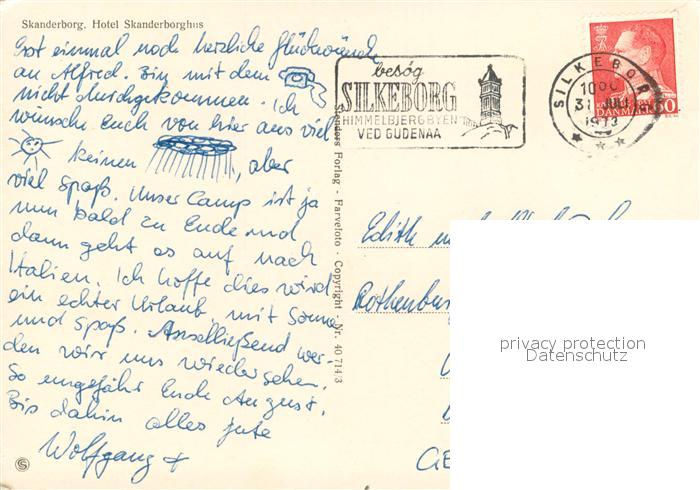 Skanderborg. Hotel Skanderborghus
Erst einmal noch herzliche Glückwünsche
an Alfred. Bin mit dem
nicht durchgekommen. Ich
wünsche Euch von hier aus viel
keinen , aber
viel Spaß. Unser Camp ist ja
nun bald zu Ende und
dann geht es auf nach
Italien. Ich hoffe dies wird
ein echter Urlaub, mit Sonne
und Spaß. Anschließend wer-
den wir uns wiedersehen.
So ungefähr Ende August.
Bis dahin alles Gute
Wolfgang
Forlag - Farvefoto - Copyright - Nr. 40 714/3
besøg
SILKEBORG
HIMMELBJERGBYEN
VED GUDENAA
SILKEBORG
1000
31 JULI
1973
DANMARK 60
Edith
Rothenbur
GE
privacy protection
Datenschutz